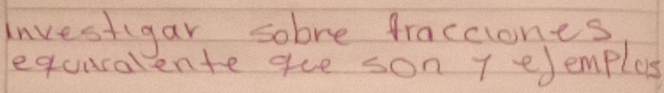 investigar sobre fracciones
equivalente que son y ejemplos